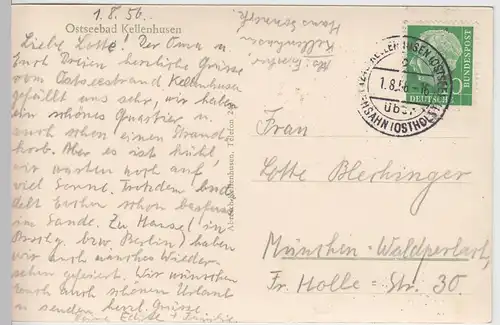 1.8.56.
Ostseebad Kellenhusen
Liebe Lotte! Der Oma u.
Euch Dreien herzliche Grüsse
vom Ostseestrand. Kellenhusen
gefällt uns sehr, wir haben
ein schönes Quartier u.
auch schon einen Strand-
korb. Aber es ist kühl,
wir warten noch auf
viel Sonne. Trotzdem bud-
delt schon
im Sande. Zu Hause (in
bzw. Berlin) haben
wir auch manches Wieder-
sehen gefeiert. Wir wünschen
euch auch schönen Urlaub
u. senden herzl. Grüsse
Eure + Familie
Kellenhusen
Haus
KELLENHUSEN (OSTHOLST)
1.8.56.-16
über
LENSAHN (OSTHOLST)
DEUTSCHE BUNDESPOST
10
Frau
Lotte Blechinger
München-Waldperlach
Fr. Holle-Str. 30